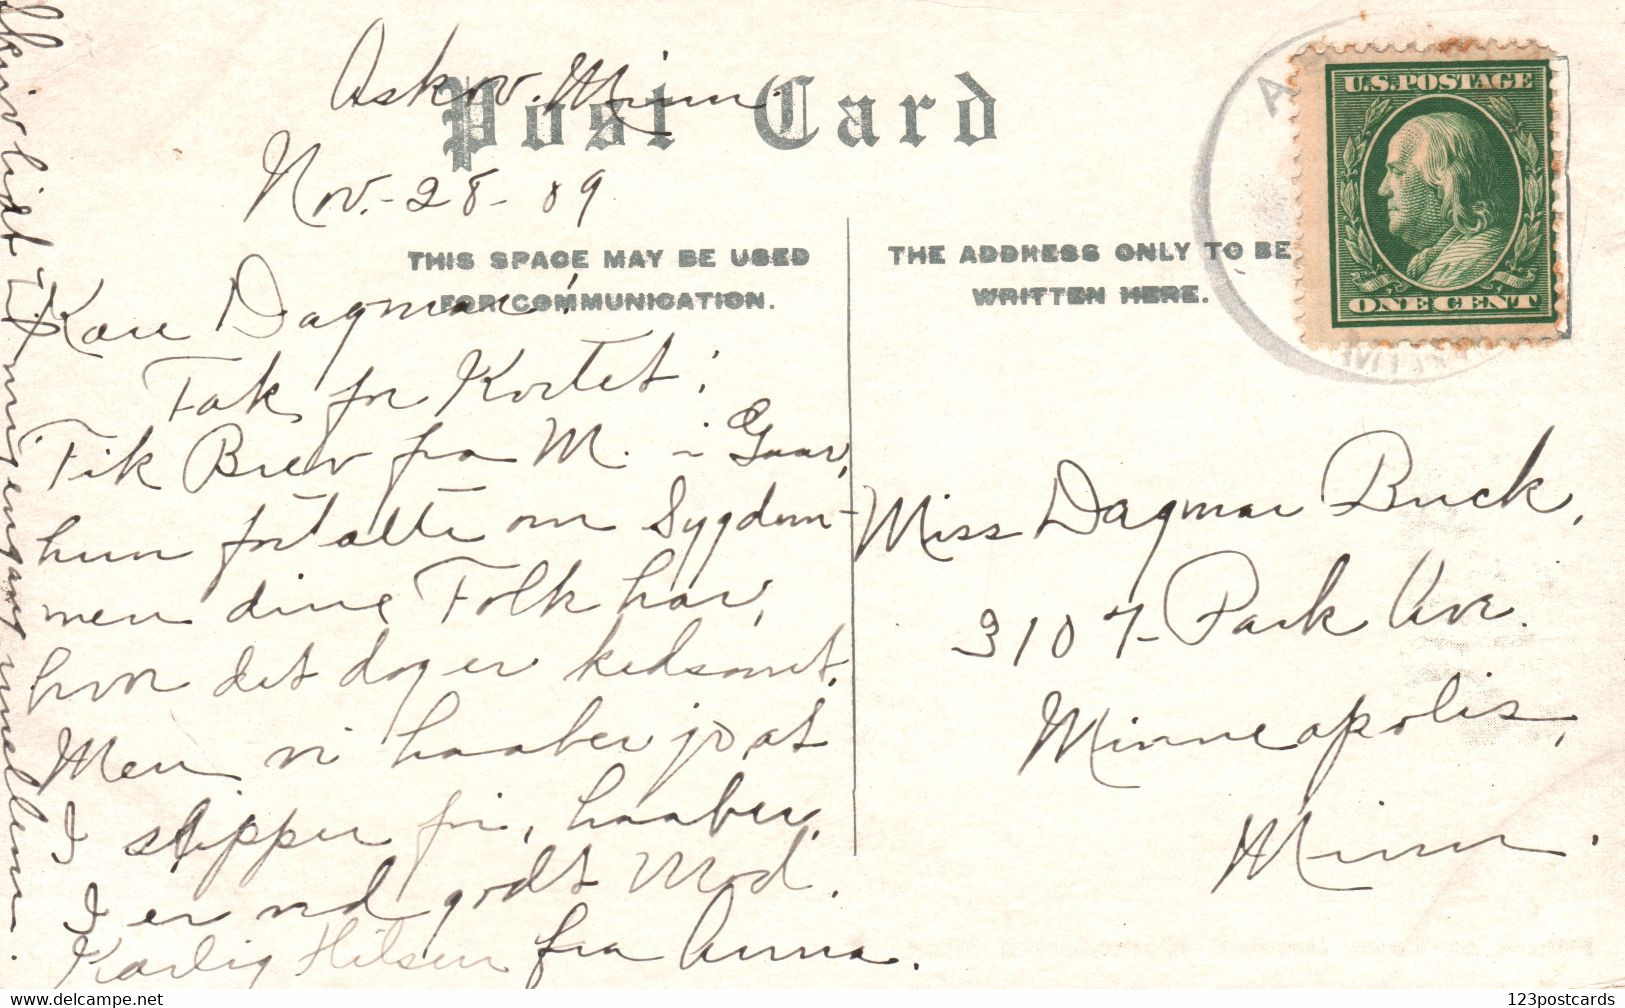 Askov. Minn.
Post Card
Nov. - 28 - 09
THIS SPACE MAY BE USED
FOR COMMUNICATION.
Kære Dagmar!
Tak for Kortet!
Fik Brev fra M. i Gaar,
hun fortalte om Sygdom-
men dine Folk har,
hvor det dog er kedsomt.
Men vi haaber jo at
I slipper fri, haaber,
I er ved godt Mod.
Kærlig Hilsen fra Anna.
Skriv lidt til mig engang imellem.
THE ADDRESS ONLY TO BE
WRITTEN HERE.
U.S. POSTAGE
ONE CENT
MINN
Miss Dagmar Buck,
3107 - Park Ave.
Minneapolis,
Minn.
123postcards